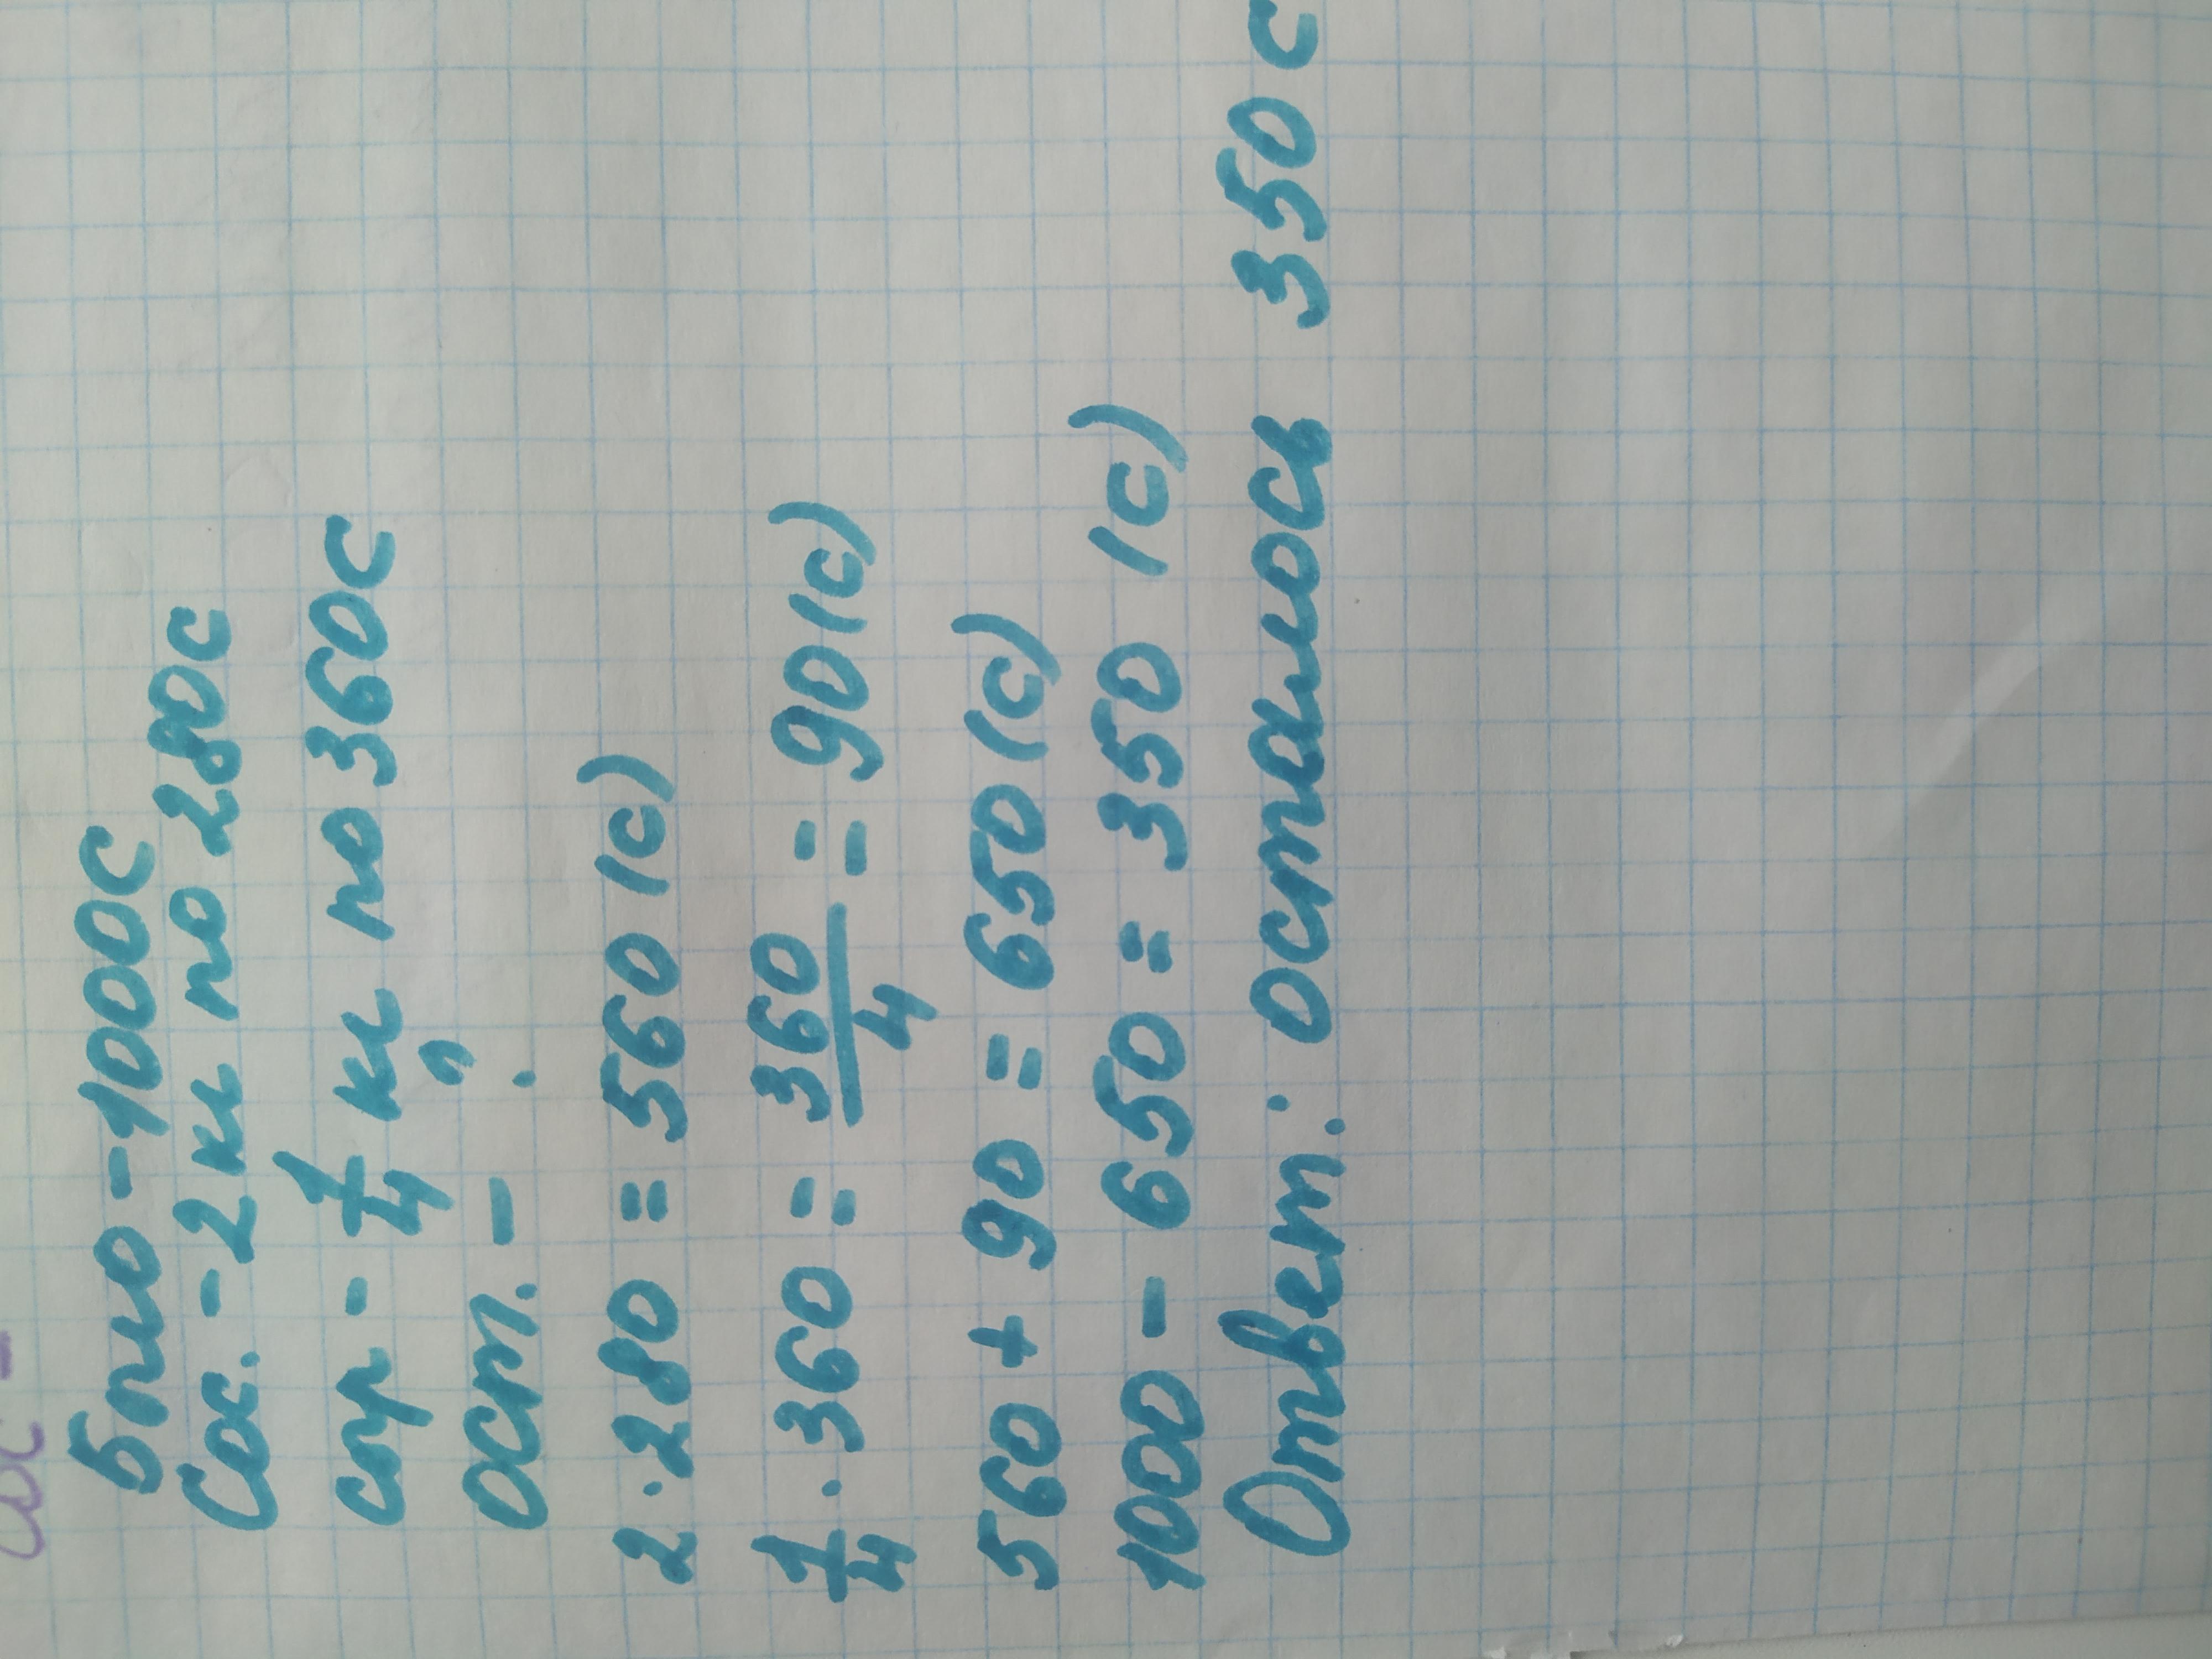 было - 1000 с
Сос. - 2 кг по 280 с
сыр - 1/4 кг по 360 с
ост. - ?
2 · 280 = 560 (с)
1/4 · 360 = 360/4 = 90 (с)
560 + 90 = 650 (с)
1000 - 650 = 350 (с)
Ответ: осталось 350 с